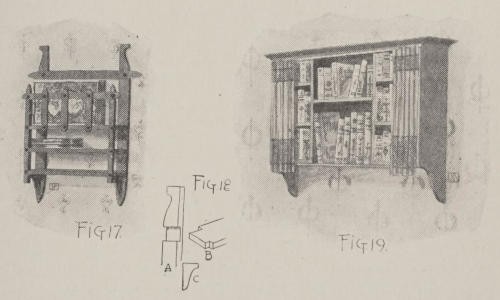 FIG 17.
FIG 18
A
B
C
FIG 19.